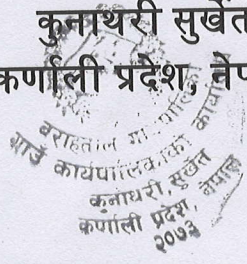 कुनाथरी सुर्खेत
कर्णाली प्रदेश, नेप
बराहताल गा
गाउँ कार्यपालिकाको कार्यालय
कुनाथरी, सुर्खेत
कर्णाली प्रदेश, नेपाल
२०७३